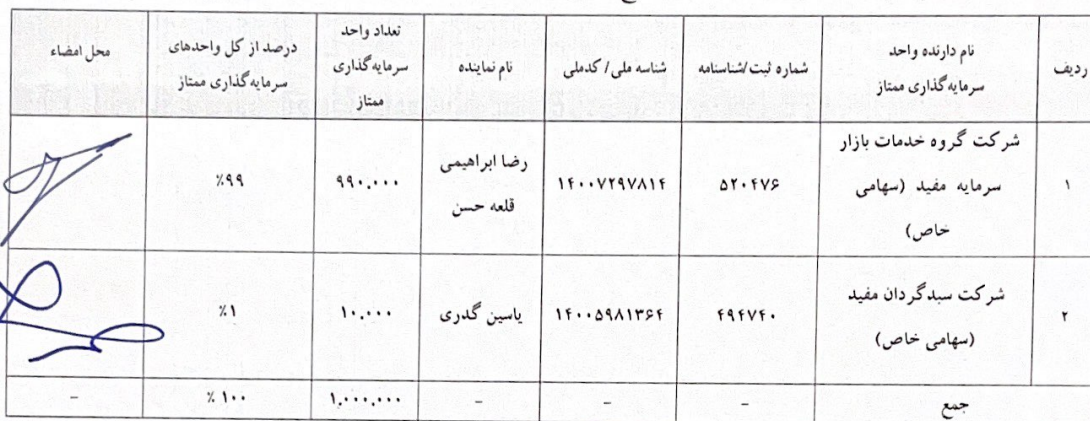 ردیف
نام دارنده واحد
سرمایه گذاری ممتاز
شماره ثبت/شناسنامه
شناسه ملی/ کدملی
نام نماینده
تعداد واحد
سرمایه گذاری
ممتاز
درصد از کل واحدهای
سرمایه گذاری ممتاز
محل امضاء
۱
شرکت گروه خدمات بازار
سرمایه مفید (سهامی
خاص)
۵۲۰۴۷۶
۱۴۰۰۷۲۹۷۸۱۴
رضا ابراهیمی
قلعه حسن
۹۹۰.۰۰۰
٪۹۹
۲
شرکت سبدگردان مفید
(سهامی خاص)
۴۹۴۷۴۰
۱۴۰۰۵۹۸۱۳۶۴
یاسین گدری
۱۰.۰۰۰
٪۱
جمع
-
-
-
۱,۰۰۰,۰۰۰
٪ ۱۰۰
-